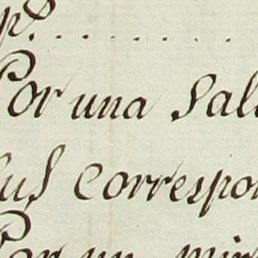 Por una Sal
sus correspon
Por un mir